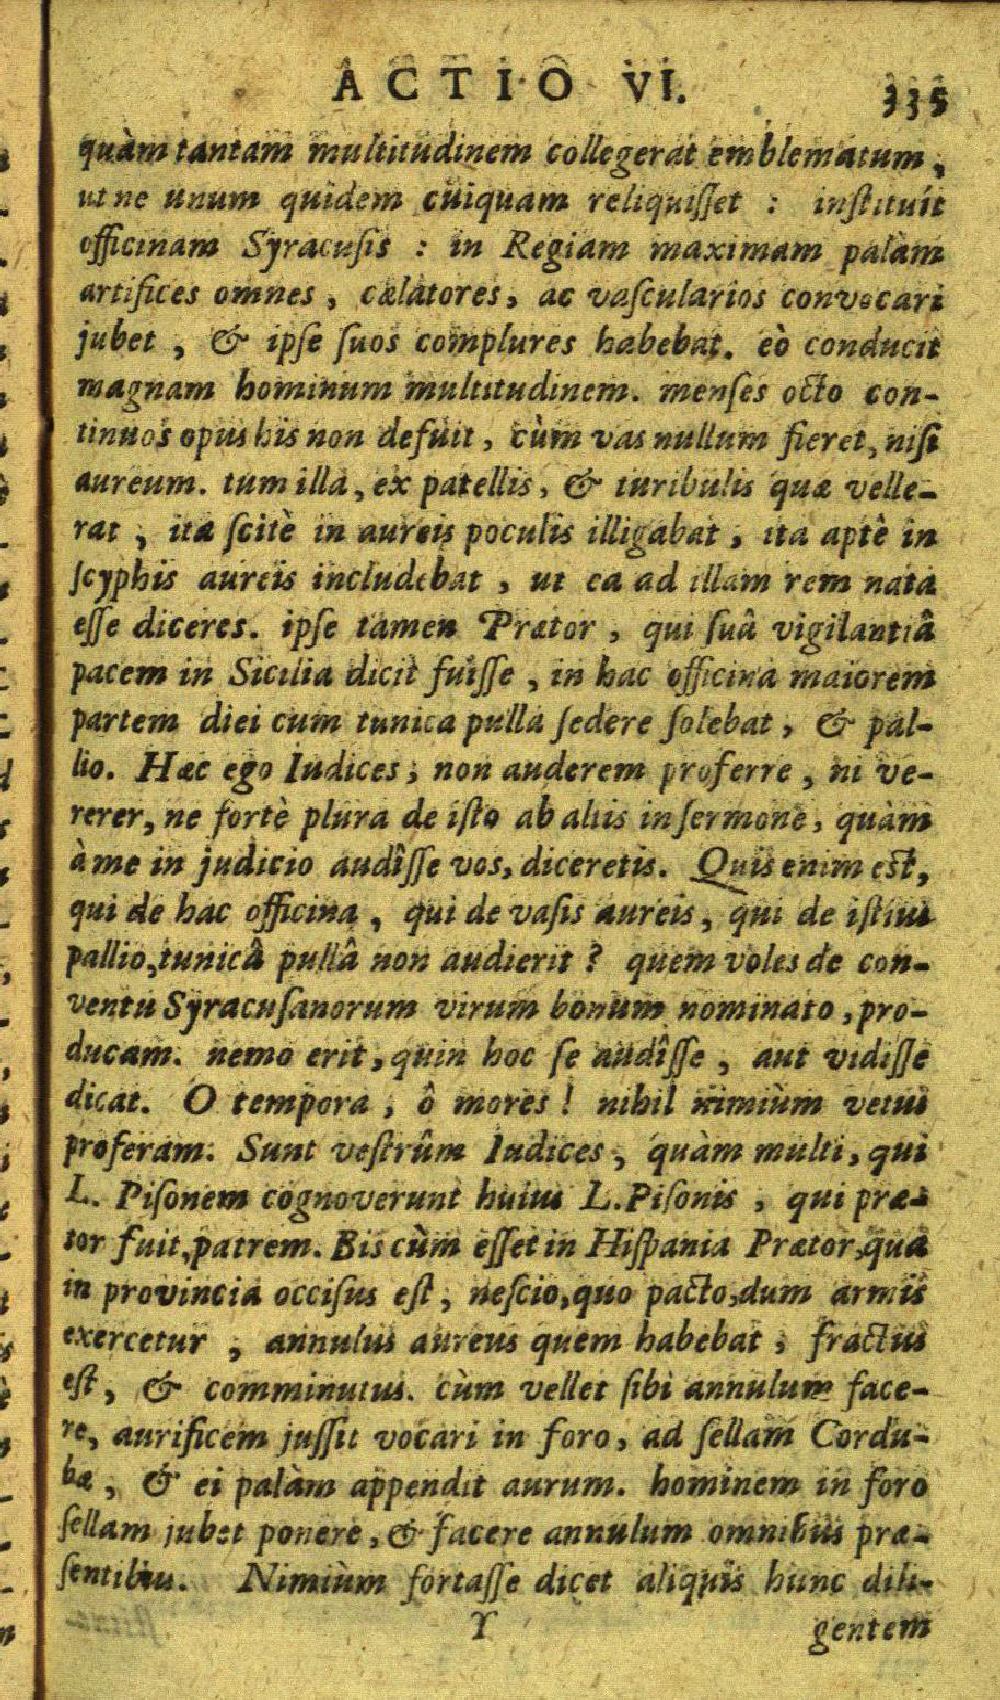 ACTIO VI. 335
quàm tantam multitudinem collegerat emblematum,
ut ne unum quidem cuiquam reliquisset : instituit
officinam Syracusis : in Regiam maximam palàm
artifices omnes, cælatores, ac vascularios convocari
jubet, & ipse suos complures habebat. eò conducit
magnam hominum multitudinem. menses octo con-
tinuos opus his non defuit, cùm vas nullum fieret, nisi
aureum. tum illa, ex patellis, & turibulis quæ velle-
rat, ita scitè in aureis poculis illigabat, ita aptè in
scyphis aureis includebat, ut ea ad illam rem nata
esse diceres. ipse tamen Prætor, qui suâ vigilantiâ
pacem in Sicilia dicit fuisse, in hac officina maiorem
partem diei cum tunica pulla sedere solebat, & pal-
lio. Hæc ego Iudices; non auderem proferre, ni ve-
rerer, ne fortè plura de isto ab aliis in sermone, quàm
à me in judicio audîsse vos, diceretis. Quis enim est,
qui de hac officina, qui de vasis aureis, qui de istius
pallio, tunicâ pullâ non audierit? quem voles de con-
ventu Syracusanorum virum bonum nominato, pro-
ducam. nemo erit, quin hoc se audîsse, aut vidisse
dicat. O tempora, ô mores! nihil nimiùm vetus
proferam. Sunt vestrûm Iudices, quàm multi, qui
L. Pisonem cognoverunt huius L. Pisonis, qui præ-
tor fuit, patrem. Bis cùm esset in Hispania Prætor, qua
in provincia occisus est, nescio, quo pacto, dum armis
exercetur, annulus aureus quem habebat, fractus
est, & comminutus. cùm vellet sibi annulum face-
re, aurificem jussit vocari in foro, ad sellam Cordu-
bæ, & ei palàm appendit aurum. hominem in foro
sellam jubet ponere, & facere annulum omnibus præ-
sentibus. Nimiùm fortasse dicet aliquis hunc dili-
Y gentem